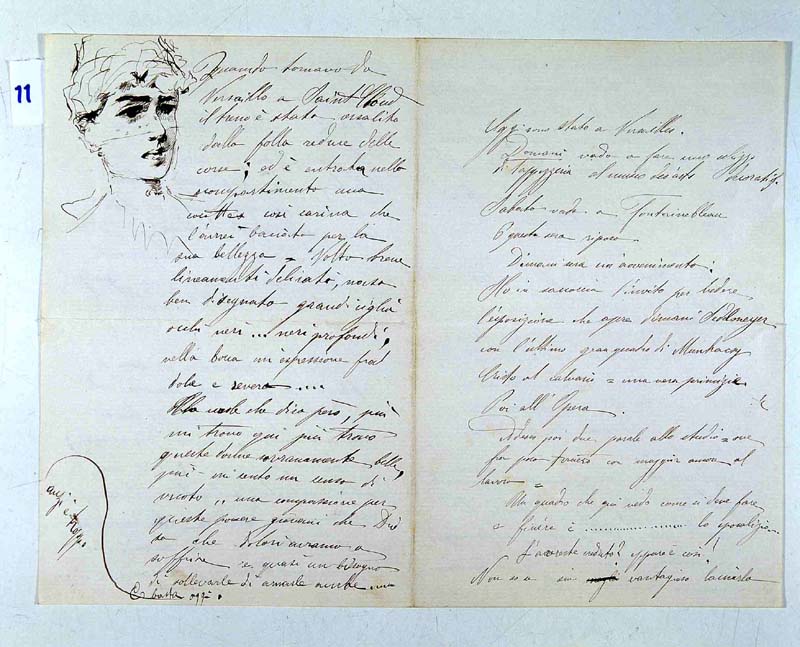 11
Quando tornavo da
Versaillo a Saint Cloud
il treno è stato assalito
dalla folla reduce delle
corse; ed è entrata nello
scompartimento una
così carina che
l'avrei baciata per la
sua bellezza = Volto breve
lineamenti delicati, naso
ben disegnato grandi ciglia
occhi neri ... neri profondi,
nella bocca un espressione fra
dole e severa ....
che dica però, più
mi trovo qui più trovo
queste donne sovranamente belle,
poi - mi sento un senso di
vuoto, .. una compassione per
queste povere giovani che Dio
sa che dolori avranno a
soffrire e quasi un bisogno
di sollevarle di amarle anche
E basta oggi.
Oggi sono stato a Versailles.
Domani vado a fare uno schizzo
di Tappezzeria al museo
Sabato vado a Fontainebleau
E questa sera riposo.
Domani sera un avvenimento:
Ho in saccoccia l'invito per vedere
l'esposizione che apra dimani Sedlmeyer
con l'ultimo gran quadro di Munkacsy
Cristo al calvario = una vera primizia
Poi all'Opera.
Adesso poi due parole allo studio =
fra poco con maggior amore al
lavoro =
Un quadro che qui vedo come si deve fare
e finire è .................. lo sposalizio
L'avreste creduto? eppure è così!
Non so a vantaggioso lasciarlo